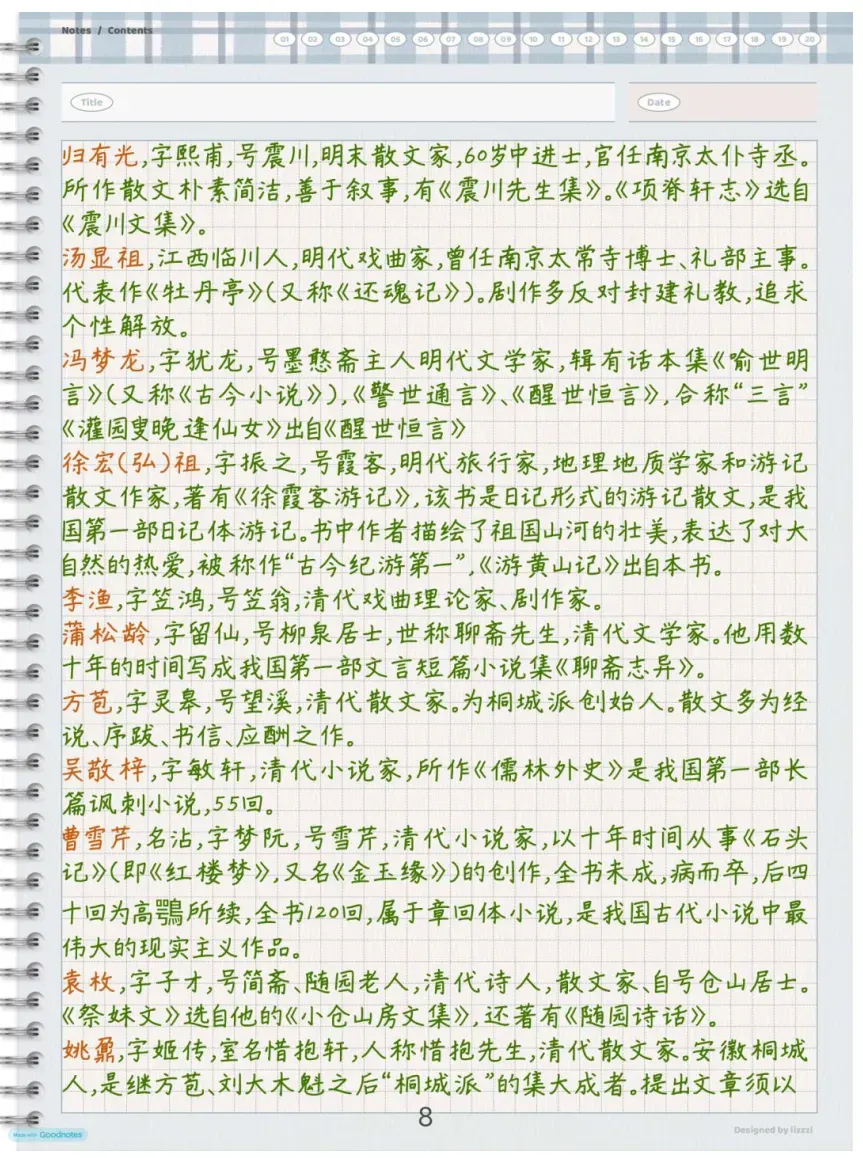 Notes / Contents
01 02 03 04 05 06 07 08 09 10 11 12 13 14 15 16 17 18 19 20
Title
Date
归有光,字熙甫,号震川,明末散文家,60岁中进士,官任南京太仆寺丞。
所作散文朴素简洁,善于叙事,有《震川先生集》。《项脊轩志》选自
《震川文集》。
汤显祖,江西临川人,明代戏曲家,曾任南京太常寺博士、礼部主事。
代表作《牡丹亭》(又称《还魂记》)。剧作多反对封建礼教,追求
个性解放。
冯梦龙,字犹龙,号墨憨斋主人明代文学家,辑有话本集《喻世明
言》(又称《古今小说》),《警世通言》、《醒世恒言》,合称“三言”
《灌园叟晚逢仙女》出自《醒世恒言》
徐宏(弘)祖,字振之,号霞客,明代旅行家,地理地质学家和游记
散文作家,著有《徐霞客游记》,该书是日记形式的游记散文,是我
国第一部日记体游记。书中作者描绘了祖国山河的壮美,表达了对大
自然的热爱,被称作“古今纪游第一”,《游黄山记》出自本书。
李渔,字笠鸿,号笠翁,清代戏曲理论家、剧作家。
蒲松龄,字留仙,号柳泉居士,世称聊斋先生,清代文学家。他用数
十年的时间写成我国第一部文言短篇小说集《聊斋志异》。
方苞,字灵皋,号望溪,清代散文家。为桐城派创始人。散文多为经
说、序跋、书信、应酬之作。
吴敬梓,字敏轩,清代小说家,所作《儒林外史》是我国第一部长
篇讽刺小说,55回。
曹雪芹,名沾,字梦阮,号雪芹,清代小说家,以十年时间从事《石头
记》(即《红楼梦》,又名《金玉缘》)的创作,全书未成,病而卒,后四
十回为高鶚所续,全书120回,属于章回体小说,是我国古代小说中最
伟大的现实主义作品。
袁枚,字子才,号简斋、随园老人,清代诗人,散文家、自号仓山居士。
《祭妹文》选自他的《小仓山房文集》,还著有《随园诗话》。
姚鼐,字姬传,室名惜抱轩,人称惜抱先生,清代散文家。安徽桐城
人,是继方苞、刘大木魁之后“桐城派”的集大成者。提出文章须以
8
Made with Goodnotes
Designed by lizzzl